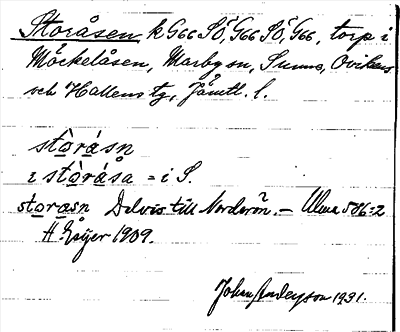 Storåsen k G66 SÖ, G66 SÖ, G66, torp i
Möckelåsen, Marby sn, Sunne, Ovikens
och Hallens tg, Jämtl. l.
stòrásn
i stòråsa = i S.
storasn Delvis till Norderön. — Ulma 586:2
H Geijer 1909.
Johan Andersson 1931.